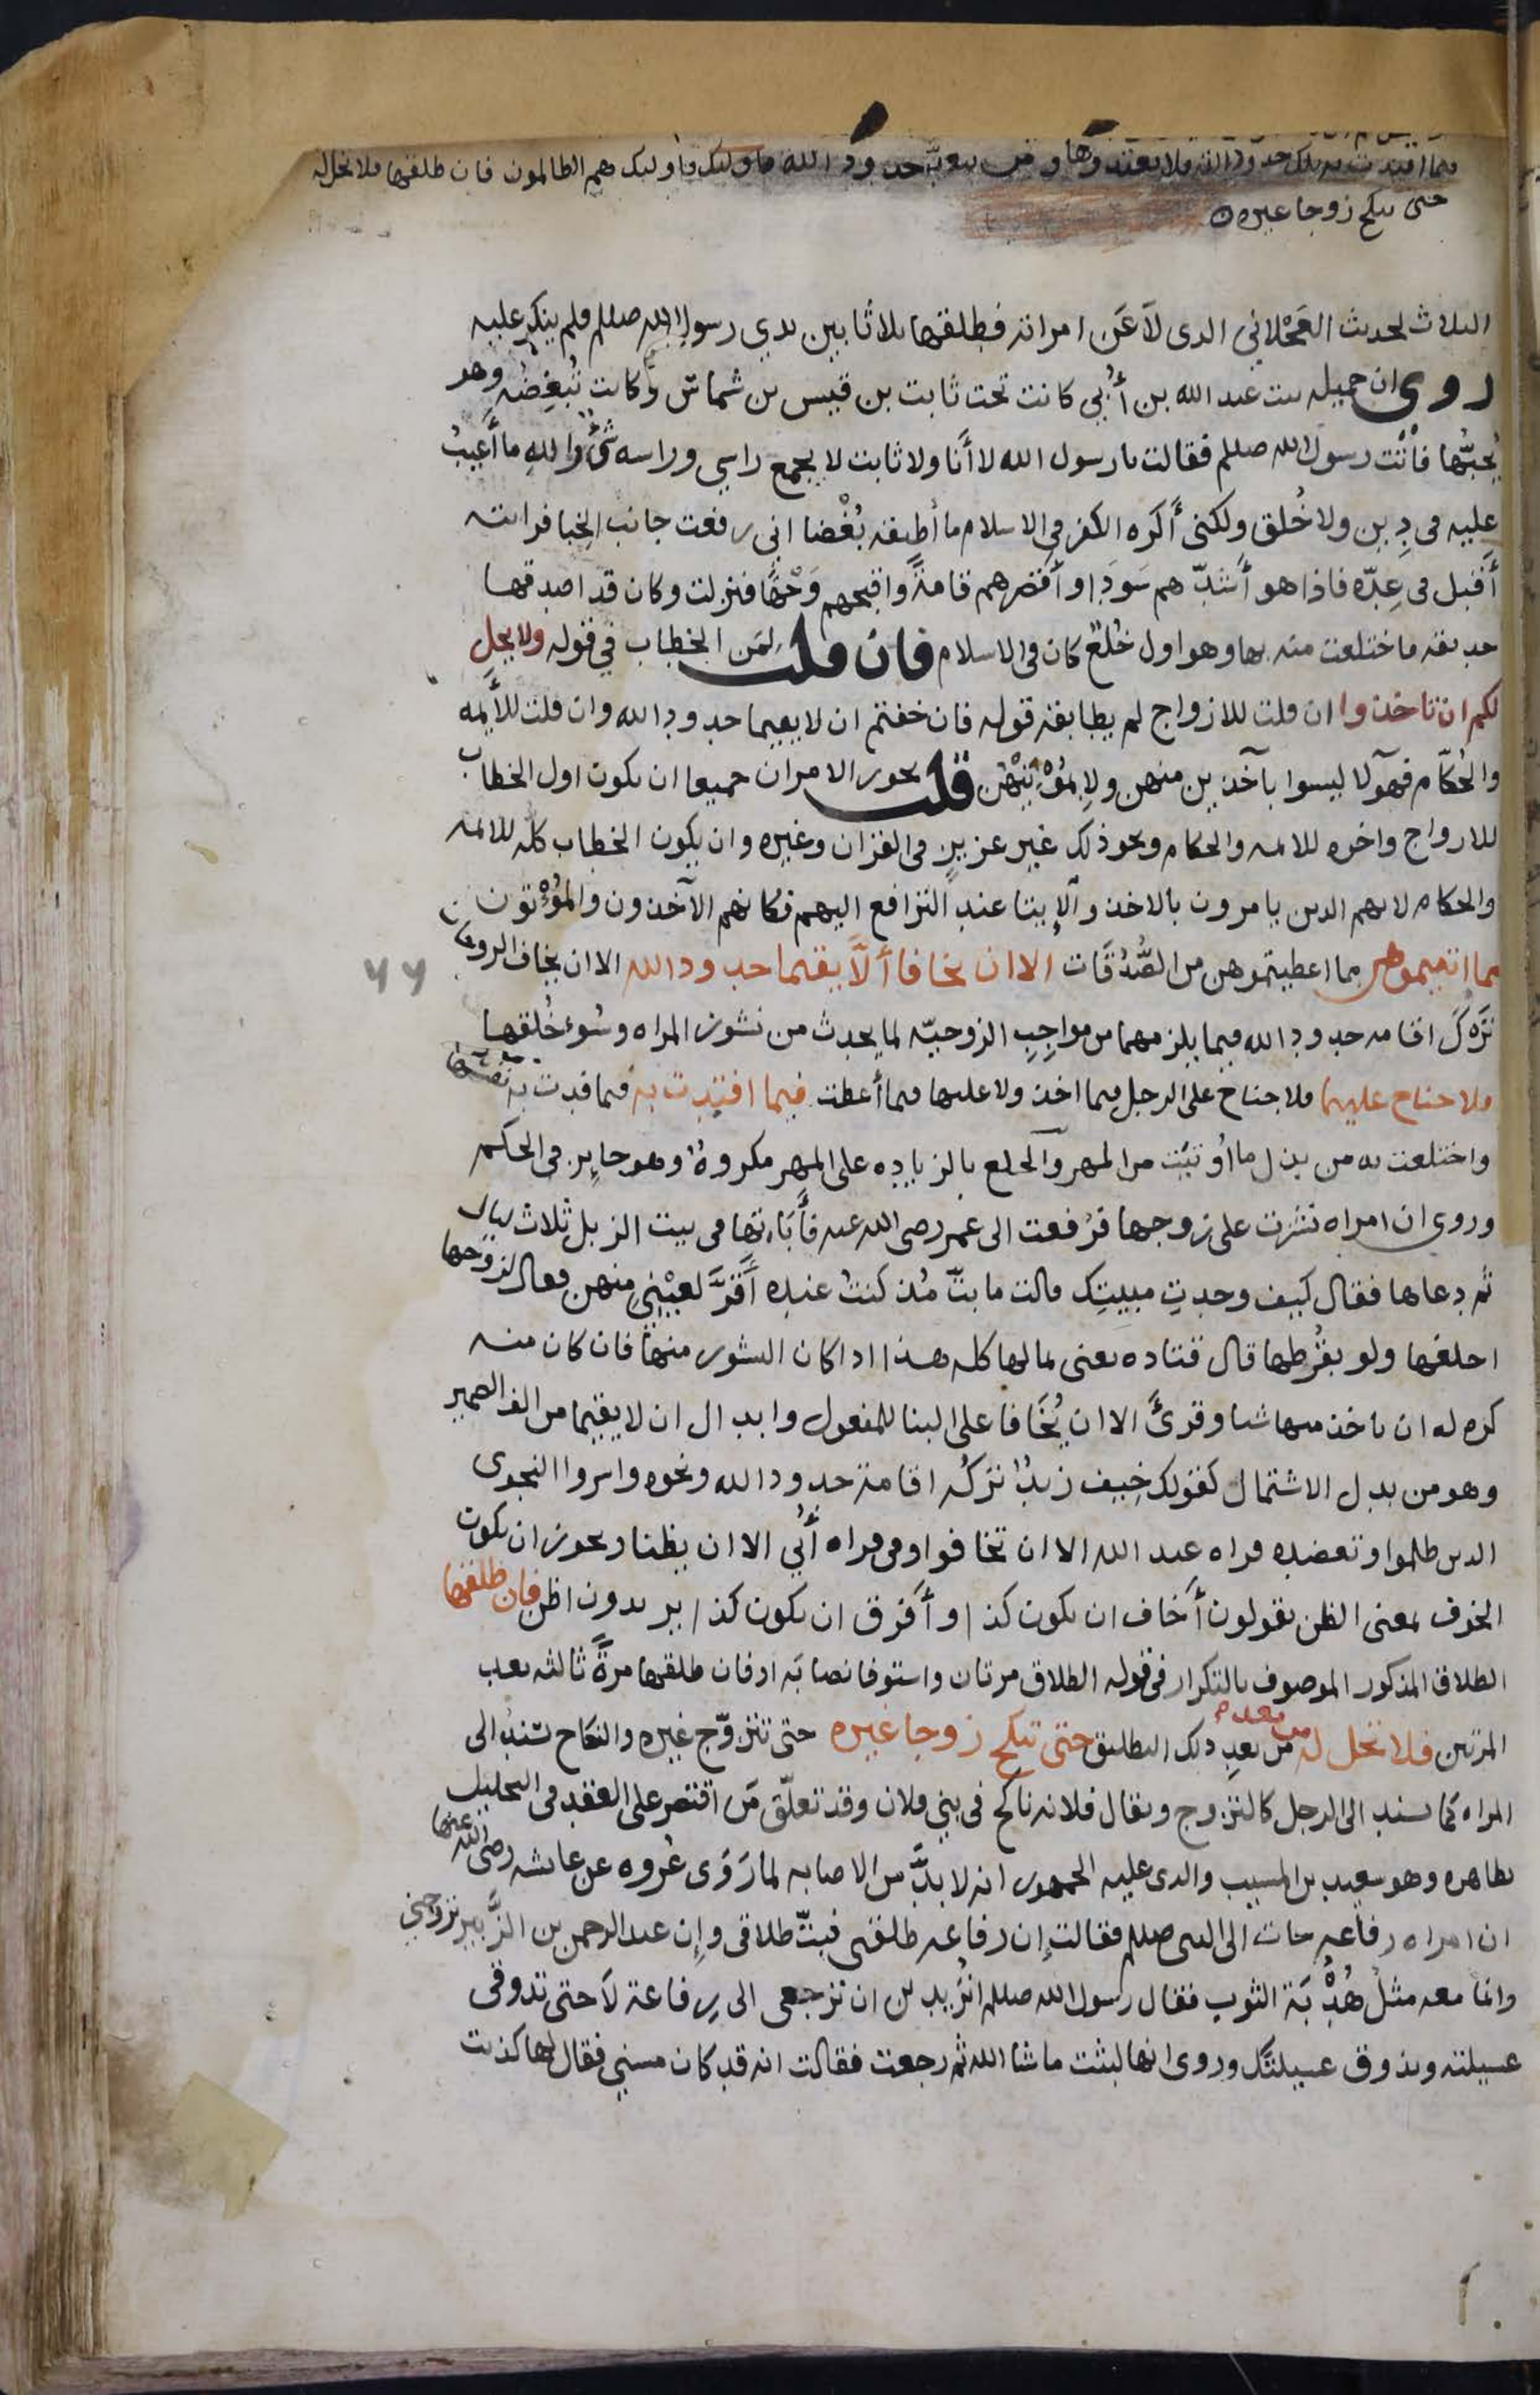 فيما افتدت به تلك حدود الله فلا تعتدوها ومن يتعد حدود الله فاولئك فاوليك هم الظالمون فان طلقها فلا تحل له
حتى ينكح زوجا غيره
الثلاث لحديث العَجْلاني الذى لاَعَن امراته فطلقها ثلاثا بين يدي رسول الله صللم فلم ينكر عليه
روى ان جميله بنت عبد الله بن أُبي كانت تحت ثابت بن قيس بن شماس وكانت تُبغِضُه وهو
يُحبّها فأتت رسول الله صللم فقالت يا رسول الله لا أنا ولا ثابت لا يجمع راسي وراسه شئ والله ما أَعيبُ
عليه فى دِين ولا خُلق ولكنى أكره الكفر في الاسلام ما أطيقه بُغْضا انى رفعت جانب الخِبا فرايته
أقبل فى عِدّه فاذا هو أشدّهم سَوَدا وأقصرهم قامةً واقبحهم وَجْهًا فنزلت وكان قد اصدقها
حديقه فاختلعت منه بها وهو اول خُلْع كان فى الاسلام فان قلت لمَن الخطاب في قوله ولا يحل
لكم ان تاخذوا ان قلت للازواج لم يطابقه قوله فان خفتم ان لا يقيما حدود الله وان قلت للأيمه
والحُكّام فهولا ليسوا بآخذين منهن ولا بمُؤْتيهْن قلت يجوز الامران جميعا ان يكون اول الخطاب
للازواج واخره للايمه والحكام ونحو ذلك غير عزيز فى القران وغيره وان يكون الخطاب كله للايمه
والحكام لانهم الذين يامرون بالاخذ والإيتا عند الترافع اليهم فكانهم الآخذون والمُؤْتون
مما اتيتموهن مما اعطيتموهن من الصَّدُقَات الا ان يخافا ألاّ يقيما حدود الله الا ان يخاف الزوجان
تَرْكَ اقامه حدود الله فيما يلزمهما من مواجِبِ الزوجيّه لما يحدث من نشوز المراه وسُوء خُلقها
فلا جناح عليهما فلا جناح على الرجل فيما اخذ ولا عليها فيما أعطت فيما افتدت به فيما فدت به نفسها
واختلعت به من بذل ما أُوتيَت من المهر والخلع بالزياده على المهر مكروهُ وهو جايز فى الحكم
وروي ان امراه نشزت على زوجها فرُفعت الى عمر رضى الله عنه فأَبَاتها فى بيت الزبل ثلاث ليال
ثم دعاها فقال كيف وجدتِ مبيتِك قالت ما بتّ مُذ كنتُ عنده أَقرَّ لعيْني منهن فقال لزوجها
اخلعها ولو بقُرطها قال قتاده يعنى بمالها كله هذا اذا كان النشوز منها فان كان منه
كره له ان ياخذ منها شيا وقرئَ الا ان يُخَافا على البنا للمفعول وابدال ان لا يقيما من الف الضمير
وهو من بدل الاشتمال كقولك خِيف زيدٌ تركُه اقامةَ حدود الله ونحوه واسروا النجوى
الذين ظلموا وتعضده قراه عبد الله الا ان تخافوا وفى قراه أُبي الا ان يظنا ويجوز ان يكون
الخوف بمعنى الظن يقولون أخاف ان يكون كذا وأفرق ان يكون كذا يريدون اظن فان طلقها
الطلاق المذكور الموصوف بالتكرار فى قوله الطلاق مرتان واستوفا نصابَه او فان طلقها مرةً ثالثه بعد
المرتين فلا تحل له من بعد من بعدِ ذلك التطليق حتى تنكح زوجا غيره حتى تتزوّج غيره والنكاح يُسْنَد الى
المراه كما يسند الى الرجل كالتزوج ويقال فلانه ناكح فى بني فلان وقد تعلّق مَن اقتصر على العقد فى التحليل
بظاهره وهو سعيد بن المسيب والذى عليه الجمهور انه لا بدَّ من الاصابه لما رَوَى عُروه عن عايشه رضى الله عنها
ان امراه رفاعه جات الى النبى صللم فقالت إن رفاعه طلقنى فبتّ طلاقى وإن عبد الرحمن بن الزَّبير تزوجني
وانما معه مثلُ هُدْبَة الثوب فقال رسول الله صللم اتُريدين ان ترجعى الى رِفاعة لاَ حتى تذوقى
عسيلته ويذوق عسيلتكِ وروى انها لبثت ما شا الله ثم رجعت فقالت انه قد كان مسني فقال لها كذبت